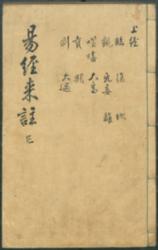 上經
臨 復 坎
觀 无妄 離
噬嗑 大畜
賁 頤
剝 大過
易經来註 三